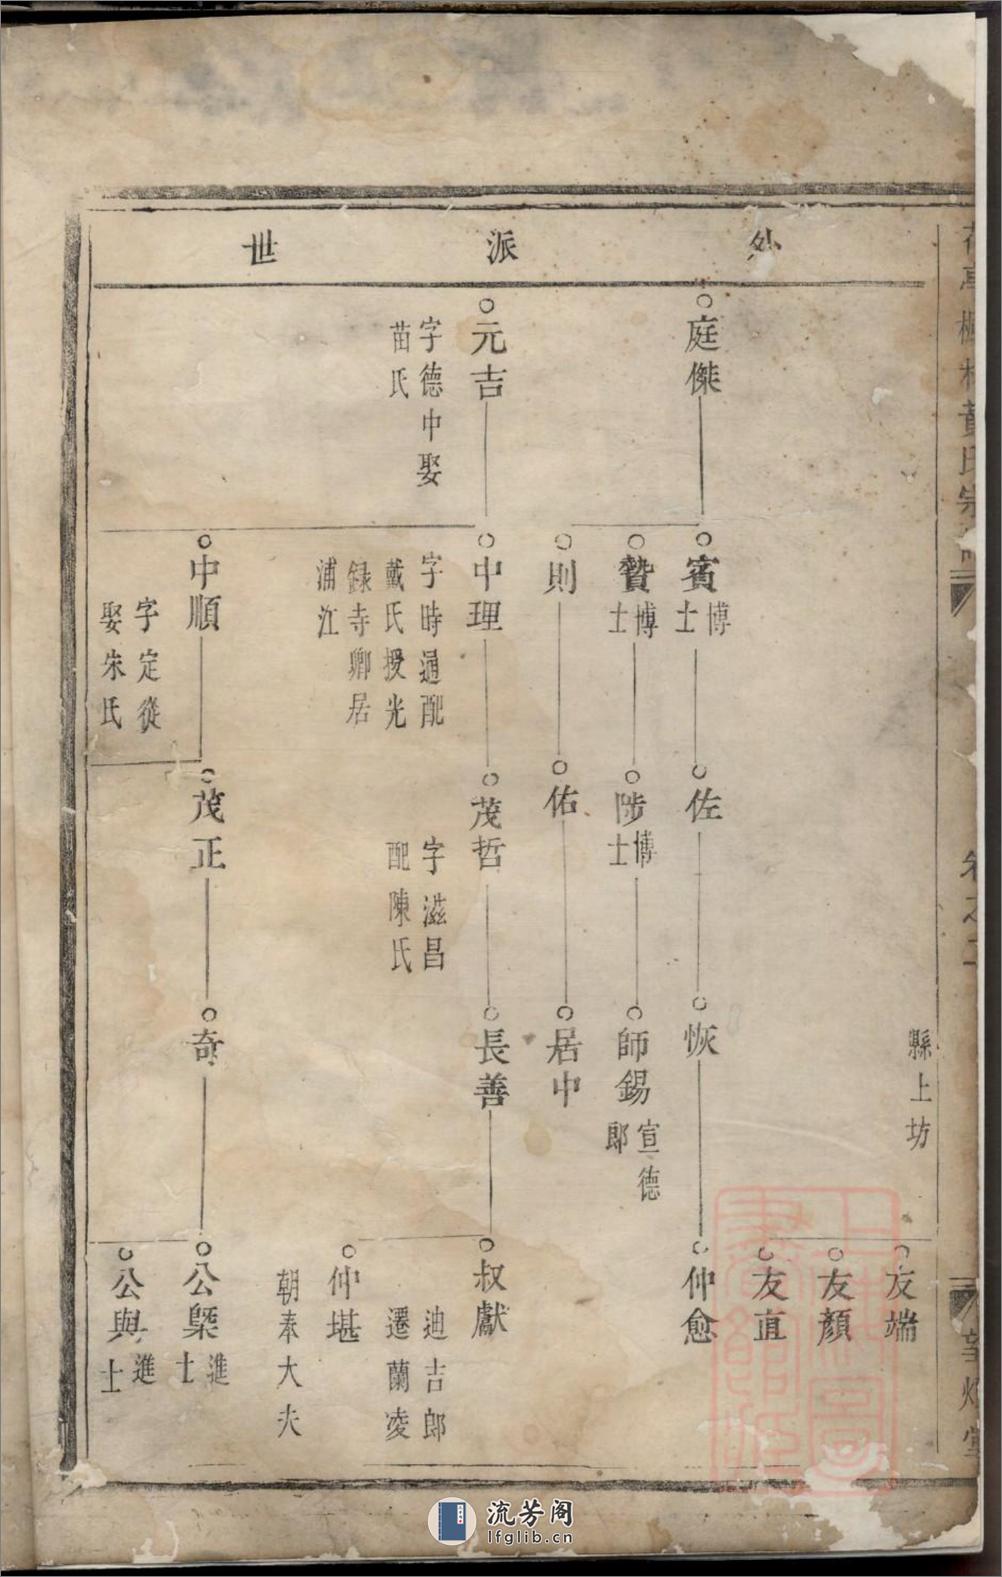 外派世
縣上坊
友端
友顏
友直
庭傑
賓 博士
佐
恢
仲愈
贄 博士
陟 博士
師錫 宣德郎
則
佑
居中
元吉 字德中娶苗氏
中理 字時通配戴氏授光録寺卿居浦江
茂哲 字滋昌配陳氏
長善
叔獻 迪吉郎遷蘭凌
仲堪 朝奉大夫
中順 字定從娶朱氏
茂正
奇
公槩 進士
公與 進士
黃氏宗
卷之二
流芳阁
lfglib.cn